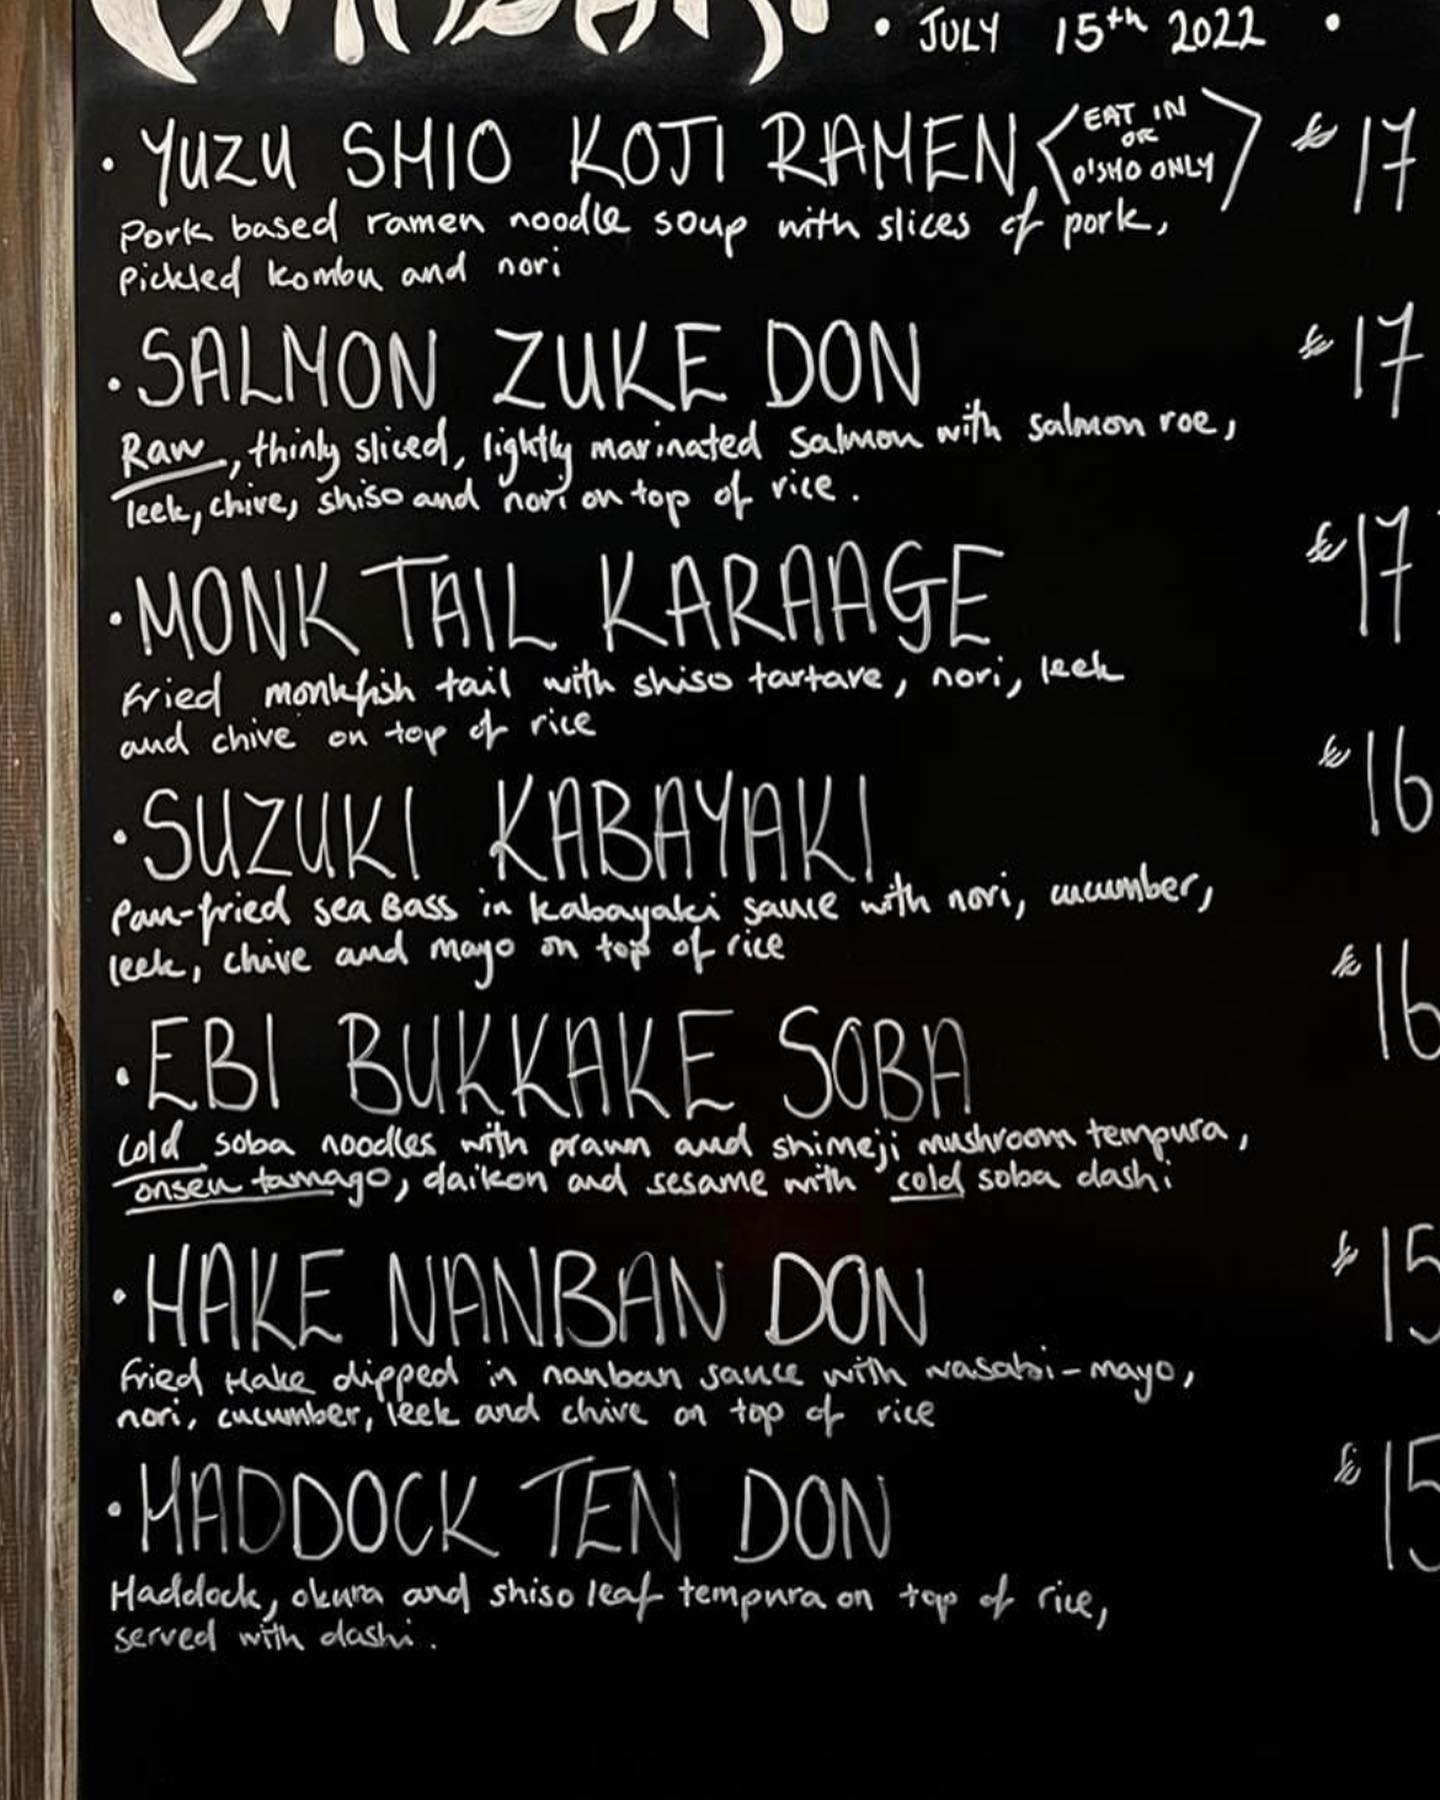 • JULY 15th 2022 •
• YUZU SHIO KOJI RAMEN, <EAT IN OR O'SHO ONLY> €17
Pork based ramen noodle soup with slices of pork,
Pickled kombu and nori
• SALMON ZUKE DON €17
Raw, thinly sliced, lightly marinated Salmon with salmon roe,
leek, chive, shiso and nori on top of rice.
• MONK TAIL KARAAGE €17
Fried monkfish tail with shiso tartare, nori, leek
and chive on top of rice
• SUZUKI KABAYAKI €16
Pan-fried sea Bass in kabayaki sauce with nori, cucumber,
leek, chive and mayo on top of rice
• EBI BUKKAKE SOBA €16
Cold soba noodles with prawn and shimeji mushroom tempura,
onsen tamago, daikon and sesame with cold soba dashi
• HAKE NANBAN DON €15
Fried Hake dipped in nanban sauce with wasabi-mayo,
nori, cucumber, leek and chive on top of rice
• HADDOCK TEN DON €15
Haddock, okura and shiso leaf tempura on top of rice,
served with dashi.